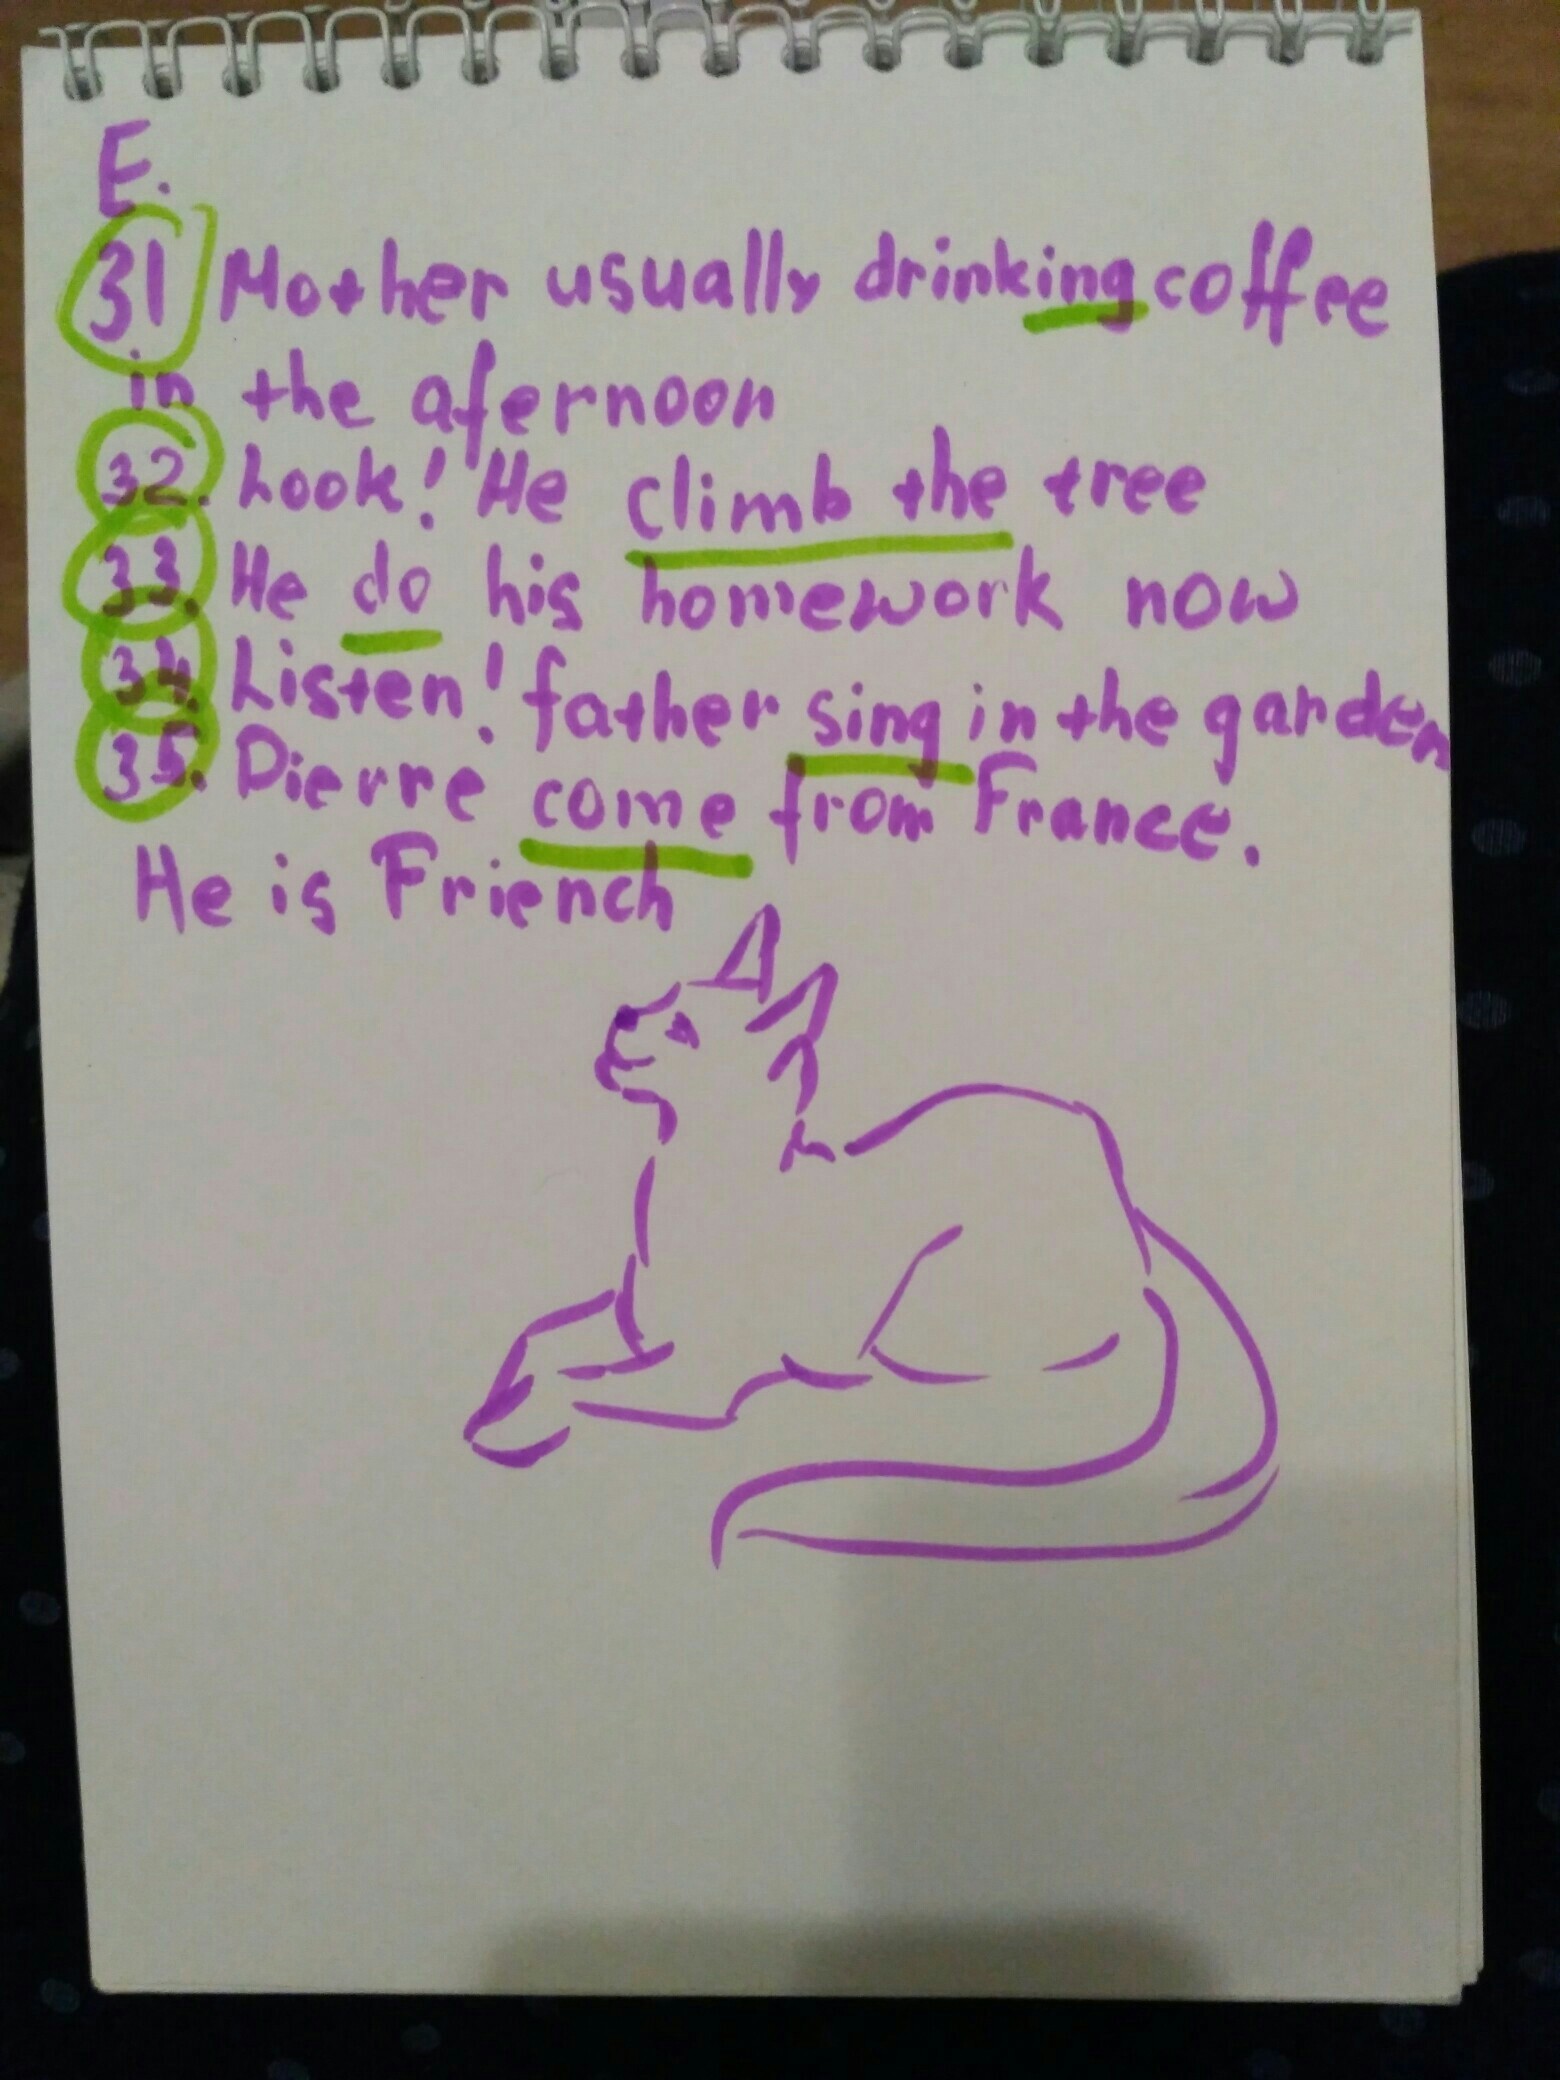 E.
31 Mother usually drinking coffee
in the afernoon
32. Look! He climb the tree
33. He do his homework now
34. Listen! father sing in the garden
35. Dierre come from France.
He is Friench